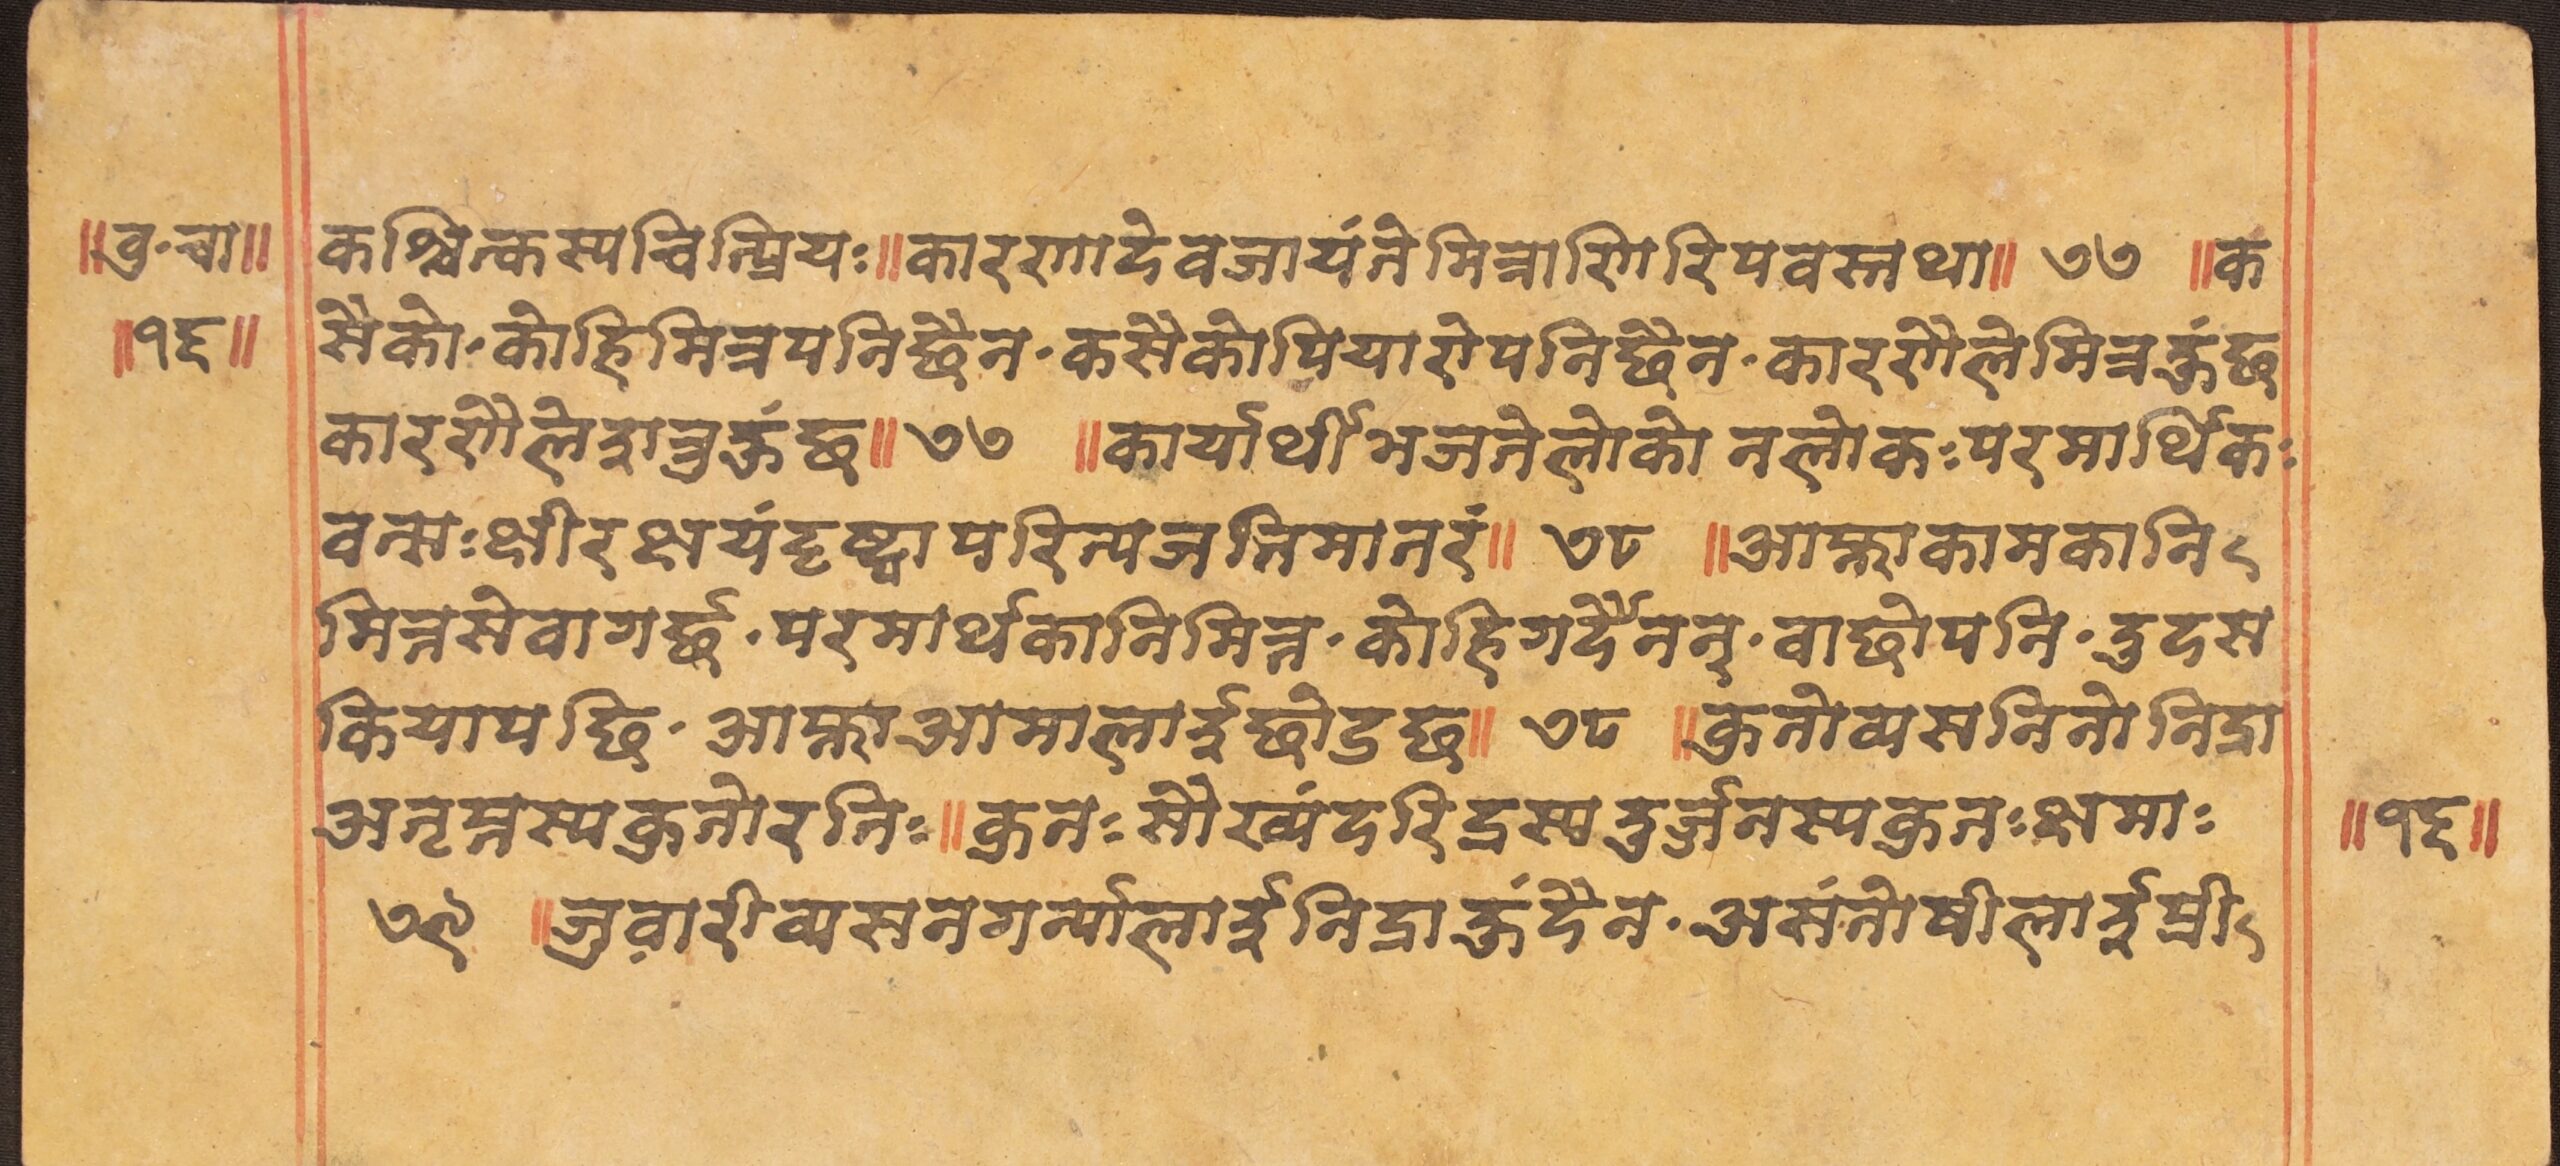 ॥वृ·चा॥ कश्चित्कस्यचित्प्रियः॥कारणादेवजायंतेमित्राणिरिपवस्तथा॥ ७७ ॥क
॥१६॥ सैको·कोहिमित्रपनिछैन·कसैकोपियारोपनिछैन·कारणैलेमित्रहुंछ
कारणैलेशत्रुहुंछ॥७७ ॥कार्यार्थीभजतेलोको नलोकःपरमार्थिकः
वत्सःक्षीरक्षयंदृष्ट्वापरित्यजतिमातरं॥ ७८ ॥आफ्नाकामकानि
मित्तसेवागर्छ·परमार्थकानिमित्त·कोहिगर्दैनन्·वाछोपनि·दुदस
कियापछि·आफ्नाआमालाईछोडछ॥ ७८ ॥कुतोव्यसनिनोनिद्रा
अतृप्तस्यकुतोरतिः॥कुतःसौख्यंदरिद्रस्यदुर्ज्जनस्यकुतःक्षमाः ॥१६॥
७९ ॥जुवारीव्यसनगर्न्यालाईनिद्राहुंदैन·असंतोषीलाईप्री